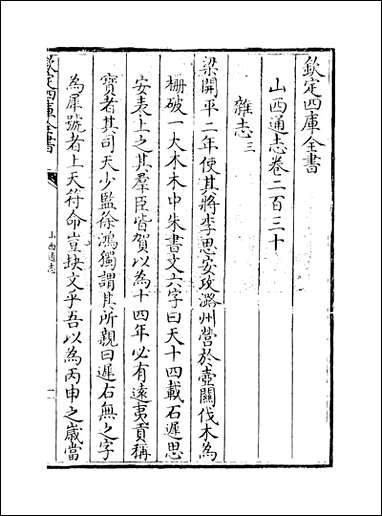 欽定四庫全書
山西通志卷二百三十
雜志三
梁開平二年使其將李思安攻潞州營於壺關伐木為
柵破一大木木中朱書文六字曰天十四載石遲思
安表上之其羣臣皆賀以為十四年必有遠夷貢稱
寳者其司天少監徐鴻獨謂其所親曰遲右無之字
為犀號者上天符命豈缺文乎吾以為丙申之嵗當
欽定四庫全書
山西通志
一